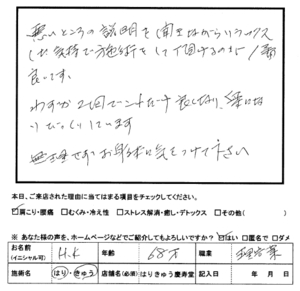 悪いところの説明を聞きながらリラックス
した気持で施術をして頂けるのが1番
良いです。
わずか2回でこんなに良くなり、楽になり
びっくりしています
無理せずお身体に気をつけて下さい
本日、ご来店された理由に当てはまる項目をチェックしてください。
☑肩こり・腰痛 □むくみ・冷え性 □ストレス解消・癒し・デトックス □その他( )
※ あなた様の声を、ホームページなどでご紹介してもよろしいですか? ☑はい □匿名で □ダメ
お名前(イニシャル可) H.K 年齢 68才 職業
施術名 はり・きゅう 店舗名(必須) はりきゅう慶寿堂 記入日 年 月 日